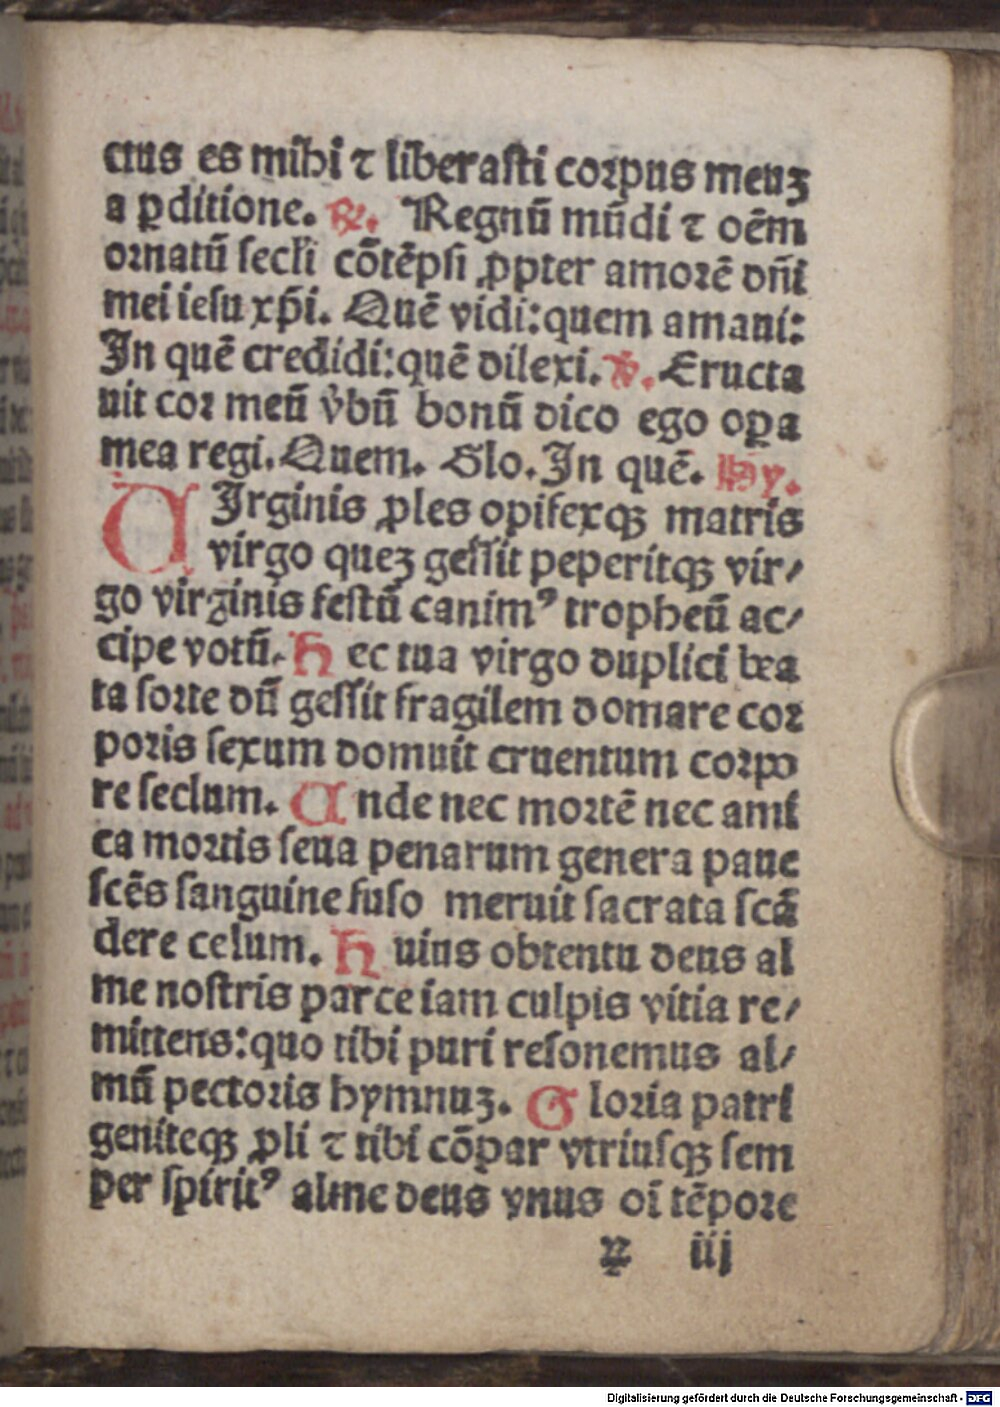 ctus es mihi ⁊ liberasti corpus meuʒ
a ꝑditione. ℟. Regnū mūdi ⁊ oēm
ornatū secl'i cōtēpsi ꝓpter amorē dn̄i
mei iesu xp̄i. Quē vidi: quem amaui:
In quē credidi: quē dilexi. ℣. Eructa
uit cor meū v̓bū bonū dico ego oꝑa
mea regi. Quem. Glo. In quē. Hy.
VIrginis ꝓles opifexqꝫ matris
virgo queʒ gessit peperitqꝫ vir⸗
go virginis festū canimꝰ tropheū ac⸗
cipe votū. Hec tua virgo duplici bea
ta sorte dū gessit fragilem domare cor
poris sexum domuit cruentum corpo
re seclum. Vnde nec mortē nec ami
ca mortis seua penarum genera paue
scēs sanguine fuso meruit sacrata scā
dere celum. Huius obtentu deus al
me nostris parce iam culpis vitia re⸗
mittens: quo tibi puri resonemus al⸗
mū pectoris hymnuʒ. Gloria patri
geniteqꝫ ꝓli ⁊ tibi cōpar vtriusqꝫ sem
per spiritꝰ alme deus vnus oī tēpore
iij
Digitalisierung gefördert durch die Deutsche Forschungsgemeinschaft - DFG